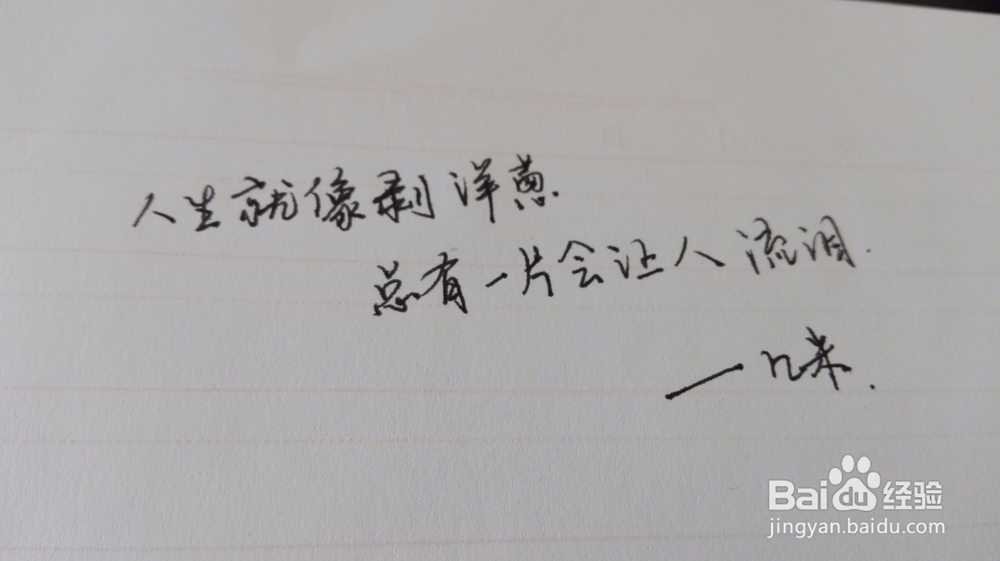 人生就像剥洋葱.
总有一片会让人流泪.
— 几米.
Baidu经验
jingyan.baidu.com